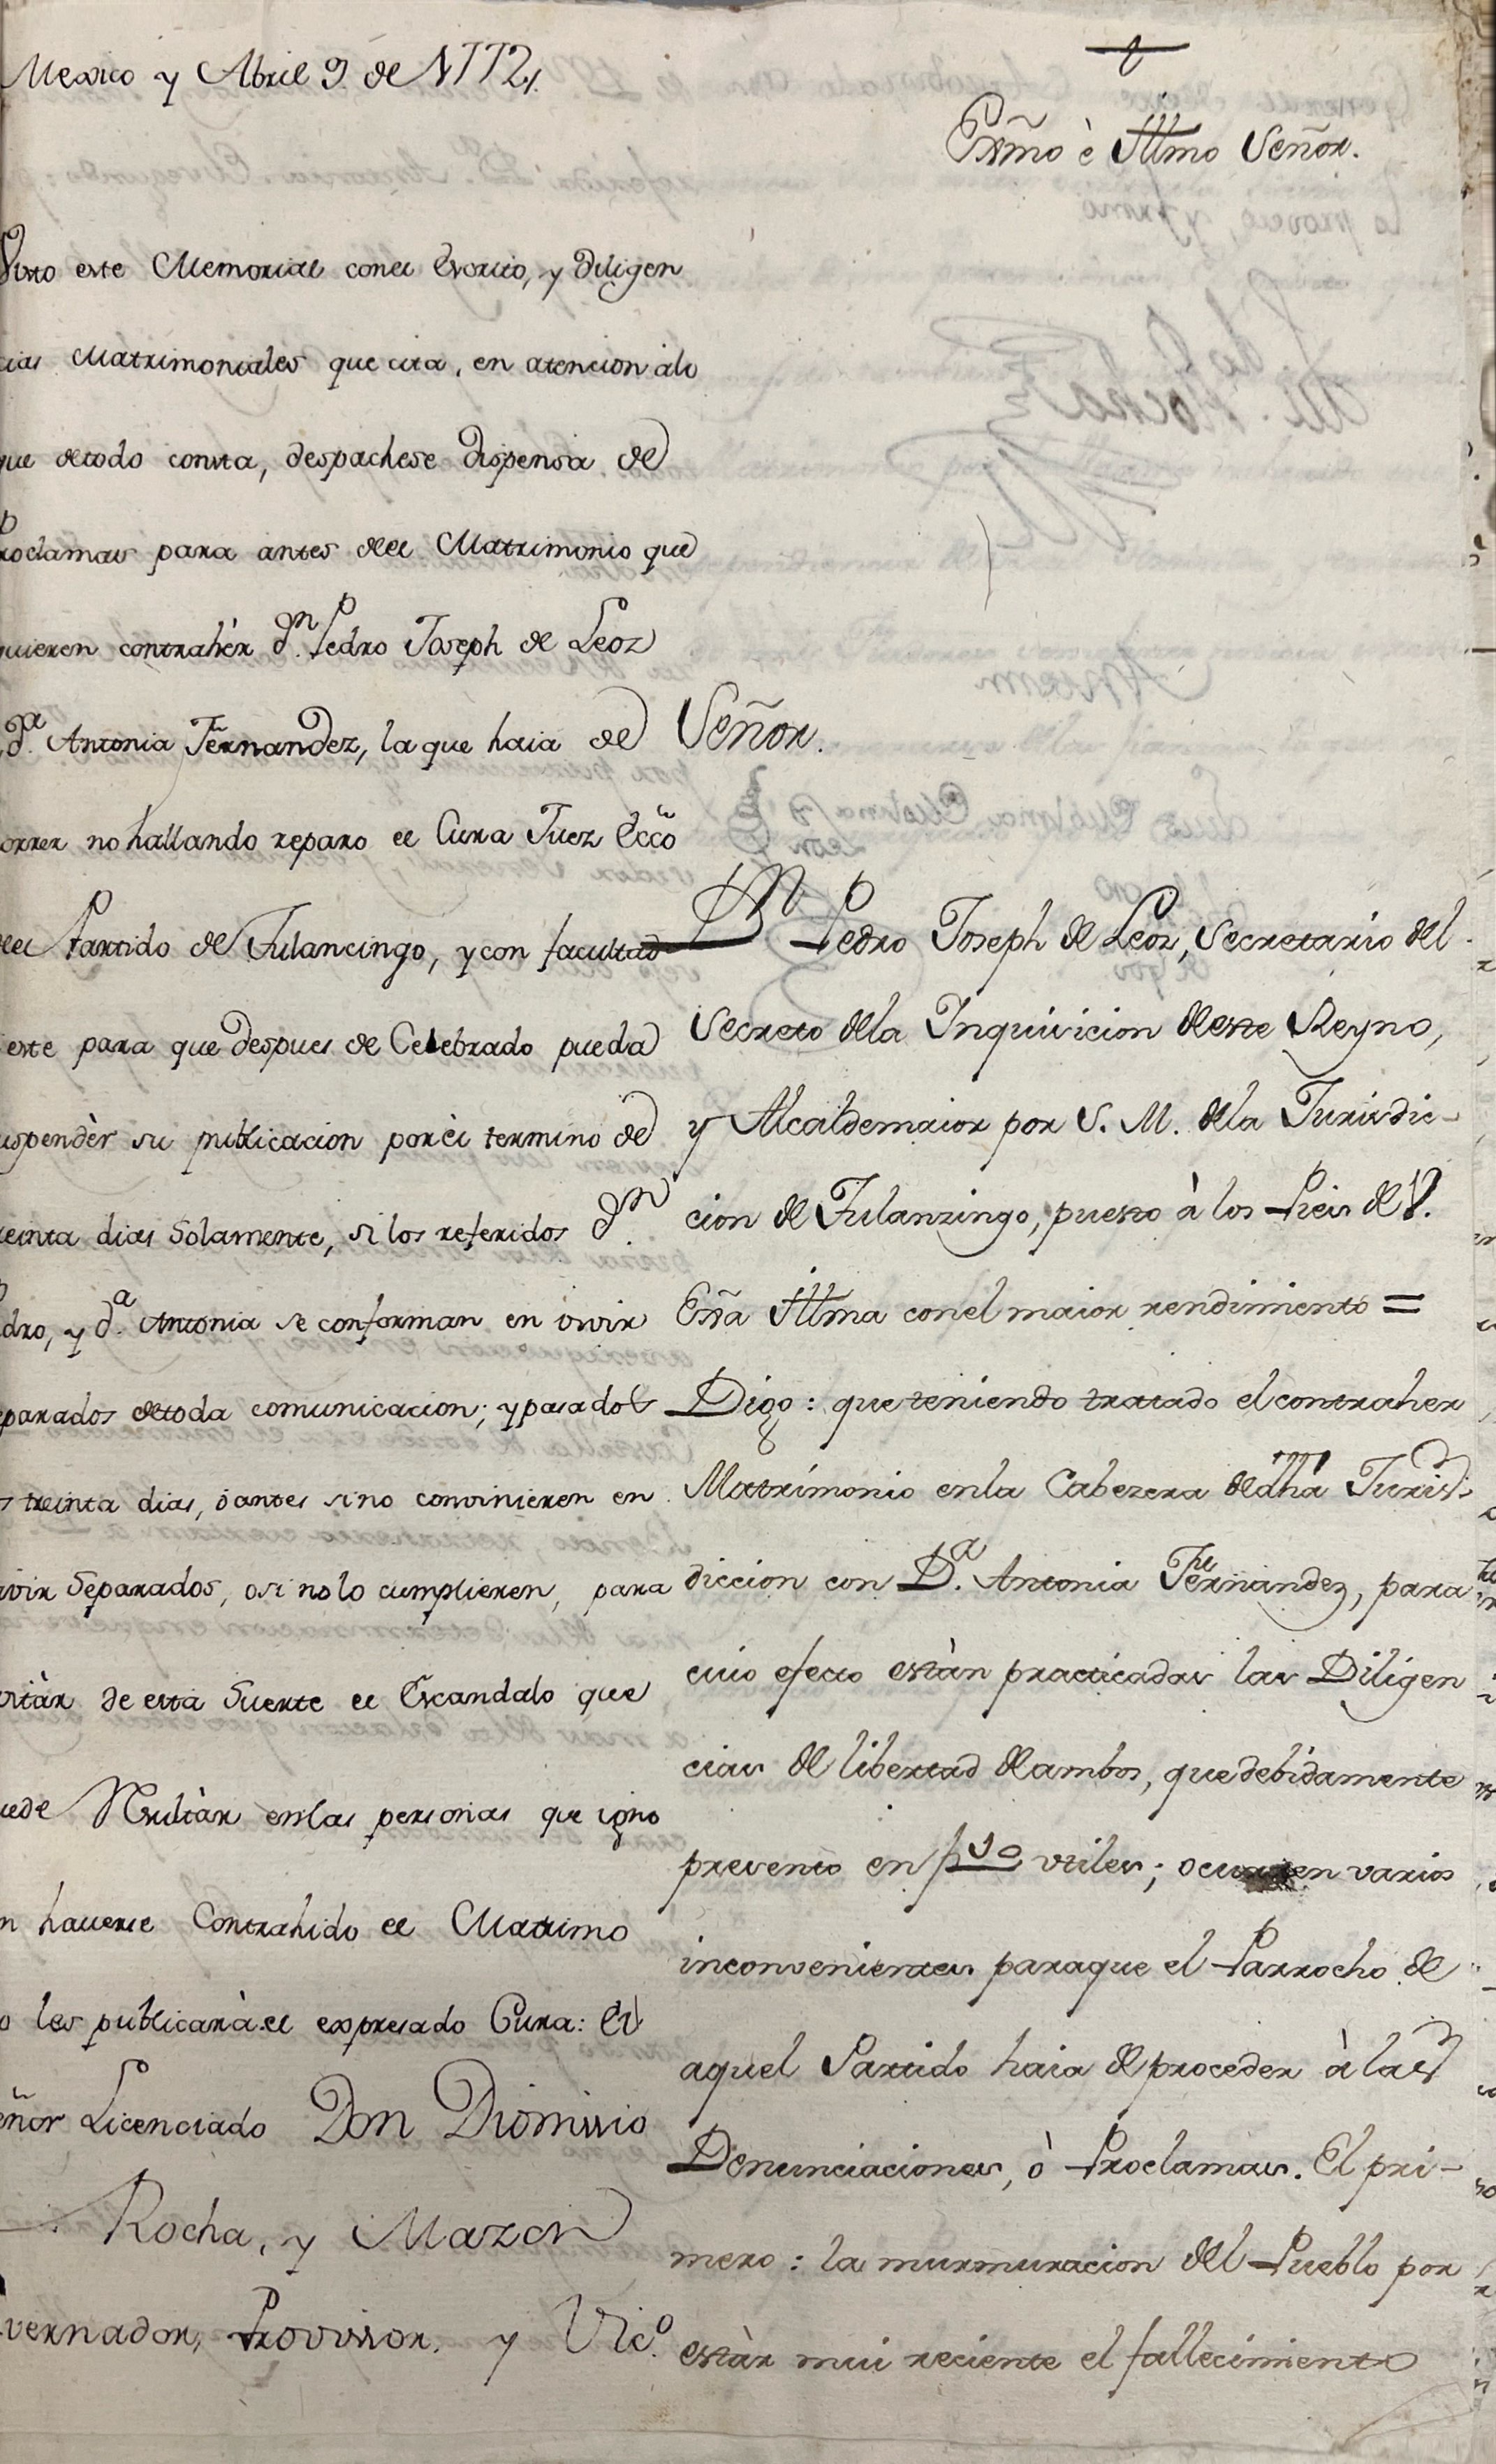 Mexico y Abril 9. de 1772,
Visto este Memorial conel Escrito, y Diligen
cias Matrimoniales que cita, en atencion alo
que detodo consta, despachese Dispensa de
Proclamas para antes del Matrimonio que
quieren contrahèr Dn. Pedro Joseph de Leoz
Da. Antonia Fernandez, la que haia de
correr no hallando reparo el Cura Juez Ecco
del Partido de Tulancingo, y con facultad
este para que despues de Celebrado pueda
uspendèr su publicacion porèl termino de
reinta dias Solamente, si los referidos Dn.
dro, y Da. Antonia se conforman en vivir
eparados detoda comunicacion; y pasado
s treinta dias, ò antes si no convinieren en
vivir Separados, o si no lo cumplieren, para
vitàr de esta Suerte el Escandalo que
uede Resultàr enlas personas que igno
n haverse Contrahido el Matrimo
o les publicarà el expresado Cura: El
eñor Licenciado Don Dionissio
Rocha, y Mazon
vernador, Provissor, y Vico.
Exmõ è Illmo Señor.
Señor.
Dn Pedro Joseph de Leoz, Secretario del
Secreto dela Inquisicion deeste Reyno,
y Alcaldemaior por S. M. dela Jurisdic-
cion de Tulanzingo, puesto à los Pies de V.
Exã Illma conel maior rendimiento =
Digo: que teniendo tratado el contraher
Matrimonio enla Cabezera dedhã Juris-
diccion con Da. Antonia Fernandez, para
cuio efecto estàn practicadas las Diligen
cias de libertad deambos, quedebidamente
presento en f utiles; ocurren varios
inconvenientes paraque el Parrocho de
aquel Partido haia de proceder à las
Denunciaciones, ò Proclamas. El pri-
mero: la murmuracion del Pueblo por
estàr mui reciente el fallecimiento